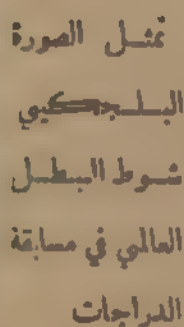 تمثل الصورة
البلجيكي
شوط البطل
العالمي في مسابقة
الدراجات